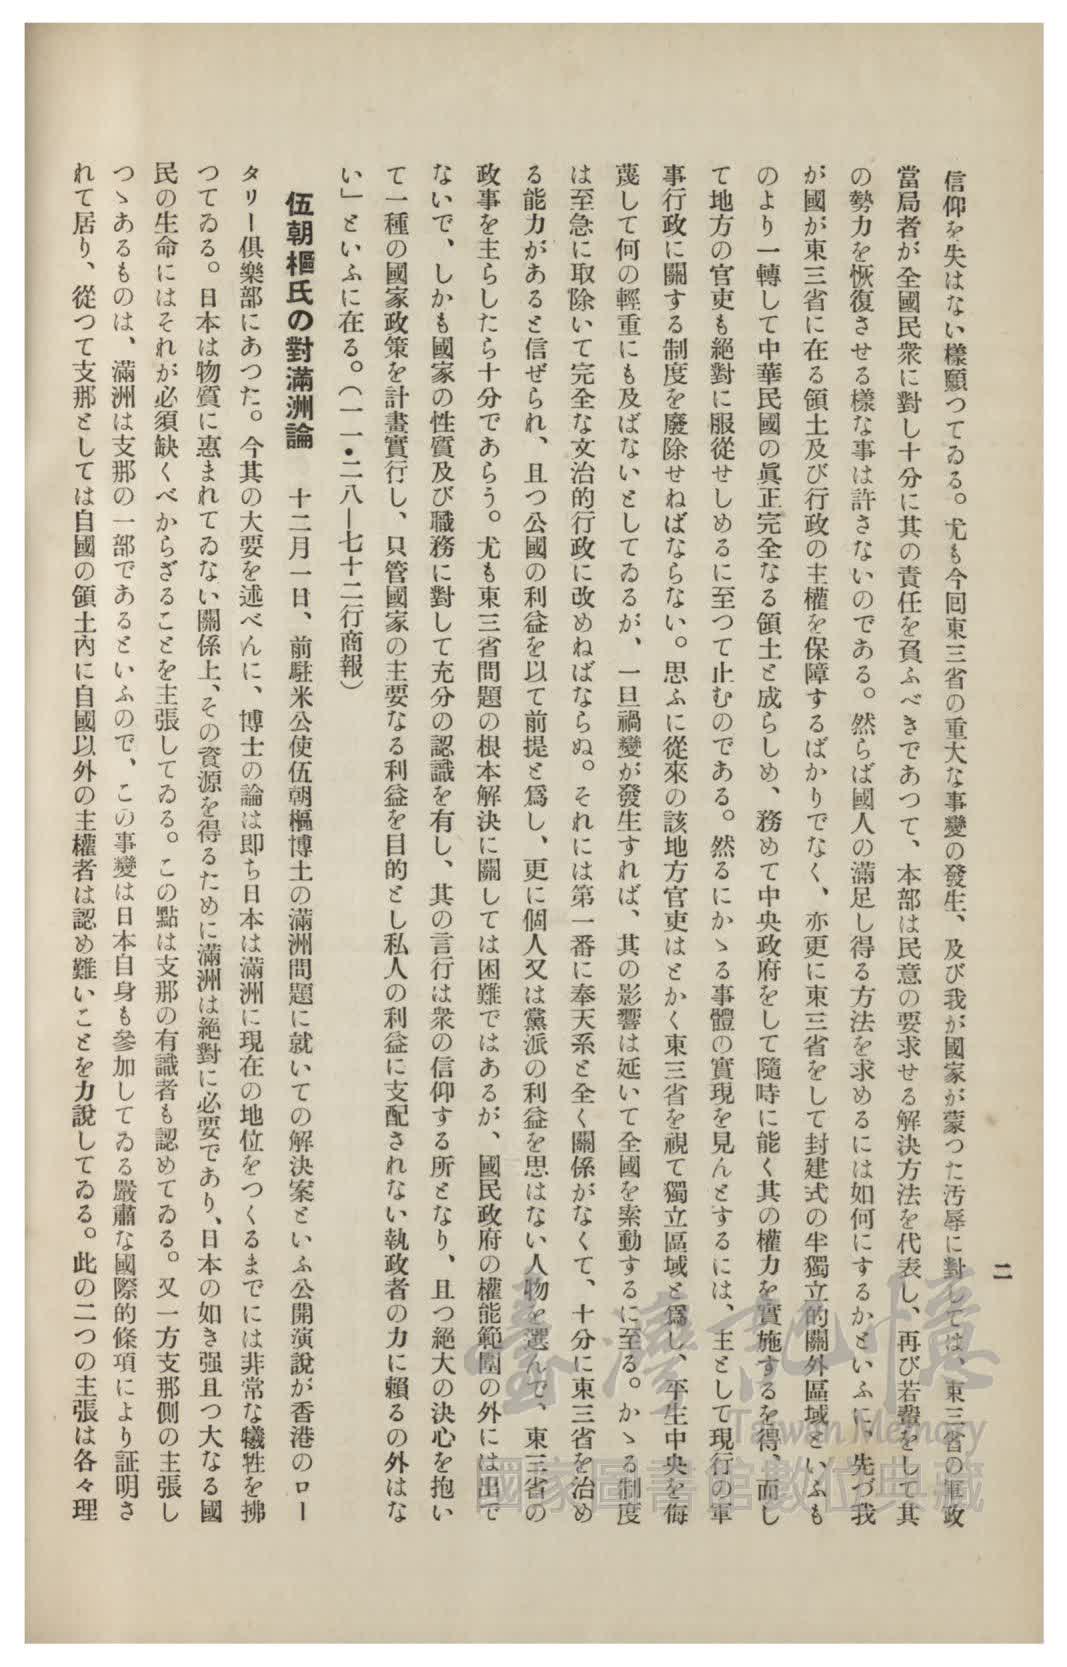 二
信仰を失はない樣願つてゐる。尤も今回東三省の重大な事變の發生、及び我が國家が蒙つた汚辱に對しては、東三省の軍政
當局者が全國民衆に對し十分に其の責任を負ふべきであつて、本部は民意の要求せる解決方法を代表し、再び若輩をして其
の勢力を恢復させる樣な事は許さないのである。然らば國人の滿足し得る方法を求めるには如何にするかといふに、先づ我
が國が東三省に在る領土及び行政の主權を保障するばかりでなく、亦更に東三省をして封建式の半獨立的關外區域といふも
のより一轉して中華民國の眞正完全なる領土と成らしめ、務めて中央政府をして隨時に能く其の權力を實施するを得、而し
て地方の官吏も絕對に服從せしめるに至つて止むのである。然るにかゝる事體の實現を見んとするには、主として現行の軍
事行政に關する制度を廢除せねばならない。思ふに從來の該地方官吏はとかく東三省を視て獨立區域と爲し、平生中央を侮
蔑して何の輕重にも及ばないとしてゐるが、一旦禍變が發生すれば、其の影響は延いて全國を索動するに至る。かゝる制度
は至急に取除いて完全な文治的行政に改めねばならぬ。それには第一番に奉天系と全く關係がなくて、十分に東三省を治め
る能力があると信ぜられ、且つ公國の利益を以て前提と爲し、更に個人又は黨派の利益を思はない人物を選んで、東三省の
政事を主らしたら十分であらう。尤も東三省問題の根本解決に關しては困難ではあるが、國民政府の權能範圍の外には出で
ないで、しかも國家の性質及び職務に對して充分の認識を有し、其の言行は衆の信仰する所となり、且つ絕大の決心を抱い
て一種の國家政策を計畫實行し、只管國家の主要なる利益を目的とし私人の利益に支配されない執政者の力に賴るの外はな
い」といふに在る。（一一・二八―七十二行商報）
伍朝樞氏の對滿洲論　十二月一日、前駐米公使伍朝樞博士の滿洲問題に就いての解決案といふ公開演說が香港のロー
タリー俱樂部にあつた。今其の大要を述べんに、博士の論は即ち日本は滿洲に現在の地位をつくるまでには非常な犧牲を拂
つてゐる。日本は物質に惠まれてゐない關係上、その資源を得るために滿洲は絕對に必要であり、日本の如き强且つ大なる國
民の生命にはそれが必須缺くべからざることを主張してゐる。この點は支那の有識者も認めてゐる。又一方支那側の主張し
つゝあるものは、滿洲は支那の一部であるといふので、この事變は日本自身も參加してゐる嚴肅な國際的條項により証明さ
れて居り、從つて支那としては自國の領土內に自國以外の主權者は認め難いことを力說してゐる。此の二つの主張は各々理
臺灣記憶
Taiwan Memory
國家圖書館數位典藏